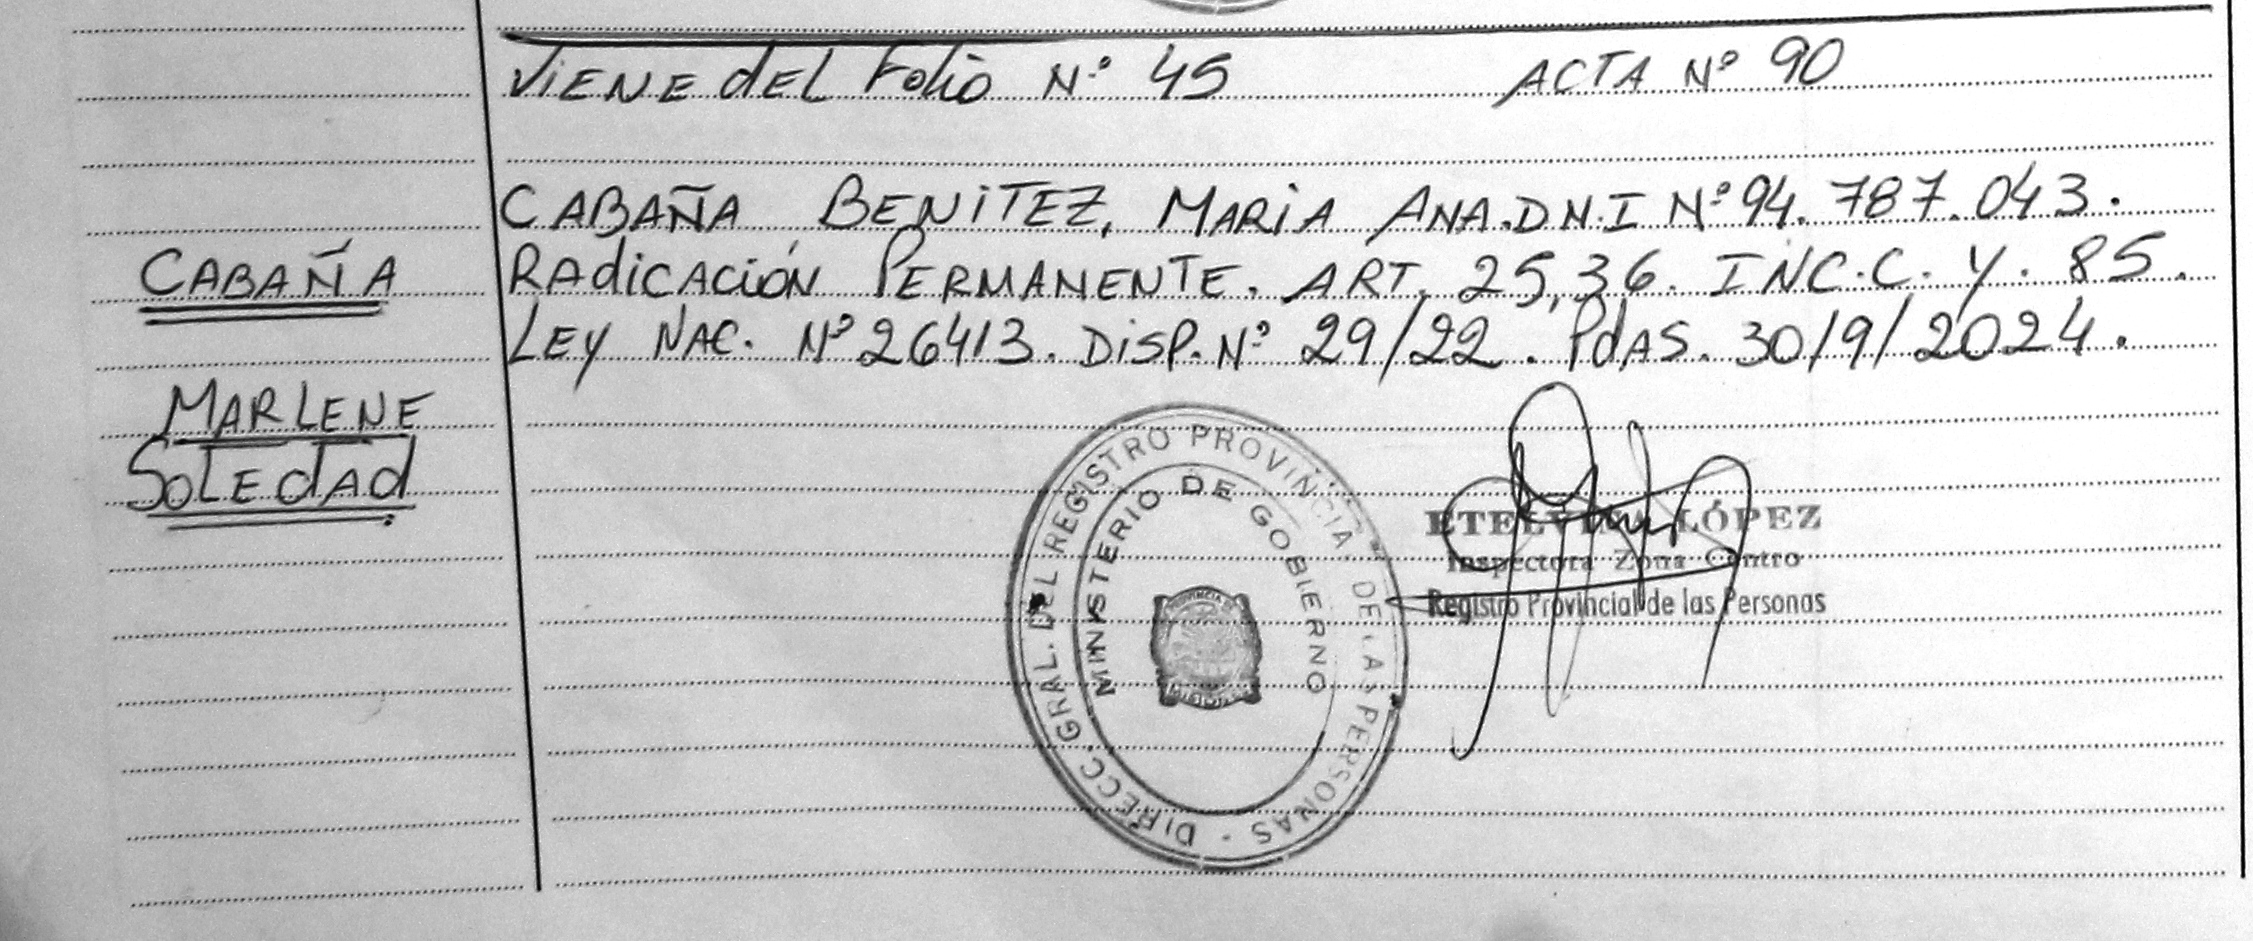 VIENE dEL Folio Nº 45 ACTA Nº 90
CABAÑA BENITEZ, MARIA ANA. D.N.I Nº 94.787.043.
CABAÑA
RAdiCACIÓN PERMANENTE. ART. 25,36. INC.C. Y. 85.
LEY NAC. Nº 26413. DISP. Nº 29/22. PdAS. 30/9/2024.
MARLENE
SOLEdAd
DIRECC. GRAL. DEL REGISTRO PROVINCIAL DE LAS PERSONAS -
MINISTERIO DE GOBIERNO
PROVINCIA DE
MISIONES
ETELVINA LÓPEZ
Inspectora Zona Centro
Registro Provincial de las Personas